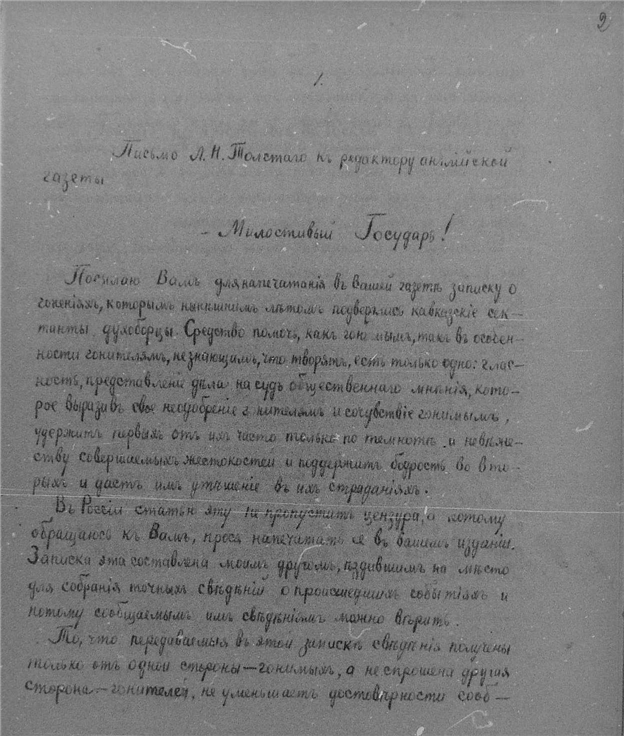 2
1.
Письмо Л. Н. Толстаго къ редактору англійской
газеты
— Милостивый Государь!
Посылаю Вамъ для напечатанія въ вашей газетѣ записку о
гоненіяхъ, которымъ нынѣшнимъ лѣтомъ подверглись кавказскіе сек-
танты духоборцы. Средство помочь, какъ гонимымъ, такъ въ особен-
ности гонителямъ, незнающимъ, что творятъ, есть только одно: глас-
ность, представленіе дѣла на судъ общественнаго мнѣнія, кото-
рое выразивъ свое неодобреніе гонителямъ и сочувствіе гонимымъ,
удержитъ первыхъ отъ ихъ часто только по темнотѣ и невѣже-
ству совершаемыхъ жестокостей и поддержитъ бодрость во вто-
рыхъ и дастъ имъ утѣшеніе въ ихъ страданіяхъ.
Въ Россіи статью эту не пропуститъ цензура, а потому
обращаюсь къ Вамъ, прося напечатать ее въ вашемъ изданіи.
Записка эта составлена моимъ другомъ, ѣздившимъ на мѣсто
для собранія точныхъ свѣдѣній о происшедшихъ событіяхъ и
потому сообщаемымъ имъ свѣдѣніямъ можно вѣрить.
То, что передаваемыя въ этой запискѣ свѣдѣнія получены
только отъ одной стороны — гонимыхъ, а не спрошена другая
сторона — гонителей, не уменьшаетъ достовѣрности сооб-